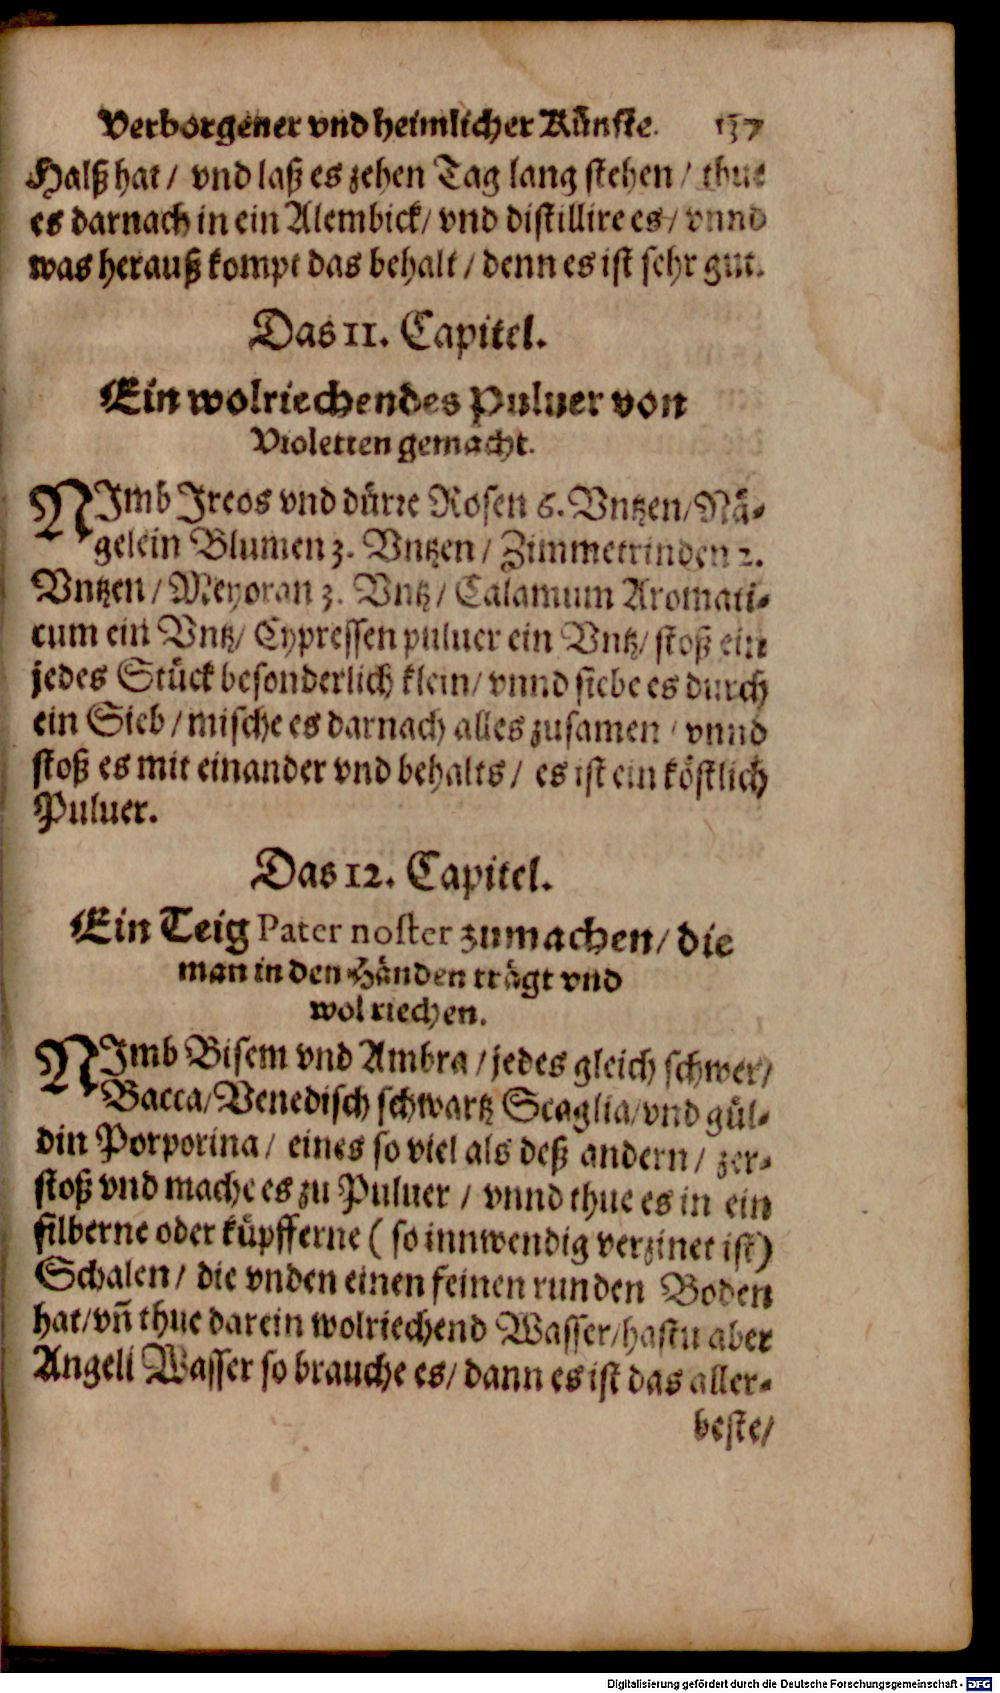 Verborgener vnd heimlicher Künste. 157
Halß hat / vnd laß es zehen Tag lang stehen / thue
es darnach in ein Alembick / vnd distillire es / vnnd
was herauß kompt das behalt / denn es ist sehr gut.
Das 11. Capitel.
Ein wolriechendes Puluer von
Violetten gemacht.
NImb Jreos vnd dürre Rosen 6. Vntzen / Nä-
gelein Blumen 3. Vntzen / Zimmetrinden 2.
Vntzen / Meyoran 3. Vntz / Calamum Aromati-
cum ein Vntz / Cypressen puluer ein Vntz / stoß ein
jedes Stück besonderlich klein / vnnd siebe es durch
ein Sieb / mische es darnach alles zusamen / vnnd
stoß es mit einander vnd behalts / es ist ein köstlich
Puluer.
Das 12. Capitel.
Ein Teig Pater noster zumachen / die
man in den Händen trägt vnd
wol riechen.
NImb Bisem vnd Ambra / jedes gleich schwer /
Bacca / Venedisch schwartz Scaglia / vnd gül-
din Porporina / eines so viel als deß andern / zer-
stoß vnd mache es zu Puluer / vnnd thue es in ein
silberne oder küpfferne ( so innwendig verzinet ist )
Schalen / die vnden einen feinen runden Boden
hat / vñ thue darein wolriechend Wasser / hastu aber
Angeli Wasser so brauche es / dann es ist das aller-
beste /
Digitalisierung gefördert durch die Deutsche Forschungsgemeinschaft - DFG